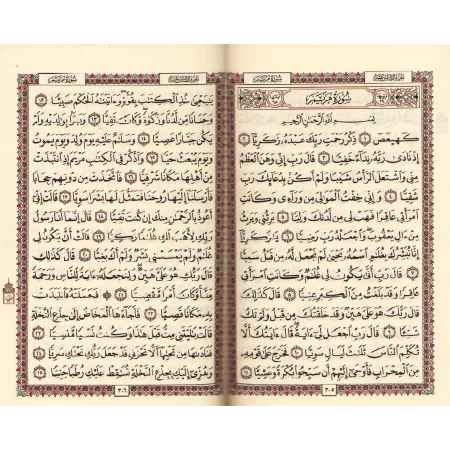 سُورَةُ مَرْيَمَ
الجزء السادس عشر
سُورَةُ مَرْيَمَ
بِسْمِ اللَّهِ الرَّحْمَٰنِ الرَّحِيمِ
كٓهيعٓصٓ ١ ذِكْرُ رَحْمَتِ رَبِّكَ عَبْدَهُۥ زَكَرِيَّآ ٢
إِذْ نَادَىٰ رَبَّهُۥ نِدَآءً خَفِيًّا ٣ قَالَ رَبِّ إِنِّى وَهَنَ ٱلْعَظْمُ
مِنِّى وَٱشْتَعَلَ ٱلرَّأْسُ شَيْبًا وَلَمْ أَكُنۢ بِدُعَآئِكَ رَبِّ
شَقِيًّا ٤ وَإِنِّى خِفْتُ ٱلْمَوَٰلِىَ مِن وَرَآءِى وَكَانَتِ
ٱمْرَأَتِى عَاقِرًا فَهَبْ لِى مِن لَّدُنكَ وَلِيًّا ٥ يَرِثُنِى وَيَرِثُ
مِنْ ءَالِ يَعْقُوبَ وَٱجْعَلْهُ رَبِّ رَضِيًّا ٦ يَٰزَكَرِيَّآ
إِنَّا نُبَشِّرُكَ بِغُلَٰمٍ ٱسْمُهُۥ يَحْيَىٰ لَمْ نَجْعَل لَّهُۥ مِن قَبْلُ سَمِيًّا
٧ قَالَ رَبِّ أَنَّىٰ يَكُونُ لِى غُلَٰمٌ وَكَانَتِ ٱمْرَأَتِى
عَاقِرًا وَقَدْ بَلَغْتُ مِنَ ٱلْكِبَرِ عِتِيًّا ٨ قَالَ كَذَٰلِكَ
قَالَ رَبُّكَ هُوَ عَلَىَّ هَيِّنٌ وَقَدْ خَلَقْتُكَ مِن قَبْلُ وَلَمْ تَكُ
شَيْـًٔا ٩ قَالَ رَبِّ ٱجْعَل لِّىٓ ءَايَةً قَالَ ءَايَتُكَ أَلَّا
تُكَلِّمَ ٱلنَّاسَ ثَلَٰثَ لَيَالٍ سَوِيًّا ١٠ فَخَرَجَ عَلَىٰ قَوْمِهِۦ
مِنَ ٱلْمِحْرَابِ فَأَوْحَىٰٓ إِلَيْهِمْ أَن سَبِّحُوا۟ بُكْرَةً وَعَشِيًّا ١١
٣٠٥
الجزء السادس عشر
سُورَةُ مَرْيَمَ
يَٰيَحْيَىٰ خُذِ ٱلْكِتَٰبَ بِقُوَّةٍ وَءَاتَيْنَٰهُ ٱلْحُكْمَ صَبِيًّا ١٢
وَحَنَانًا مِّن لَّدُنَّا وَزَكَوٰةً وَكَانَ تَقِيًّا ١٣ وَبَرًّۢا بِوَٰلِدَيْهِ وَلَمْ
يَكُن جَبَّارًا عَصِيًّا ١٤ وَسَلَٰمٌ عَلَيْهِ يَوْمَ وُلِدَ وَيَوْمَ يَمُوتُ
وَيَوْمَ يُبْعَثُ حَيًّا ١٥ وَٱذْكُرْ فِى ٱلْكِتَٰبِ مَرْيَمَ إِذِ ٱنتَبَذَتْ
مِنْ أَهْلِهَا مَكَانًا شَرْقِيًّا ١٦ فَٱتَّخَذَتْ مِن دُونِهِمْ حِجَابًا
فَأَرْسَلْنَآ إِلَيْهَا رُوحَنَا فَتَمَثَّلَ لَهَا بَشَرًا سَوِيًّا ١٧ قَالَتْ إِنِّىٓ
أَعُوذُ بِٱلرَّحْمَٰنِ مِنكَ إِن كُنتَ تَقِيًّا ١٨ قَالَ إِنَّمَآ أَنَا۠ رَسُولُ
رَبِّكِ لِأَهَبَ لَكِ غُلَٰمًا زَكِيًّا ١٩ قَالَتْ أَنَّىٰ يَكُونُ لِى
غُلَٰمٌ وَلَمْ يَمْسَسْنِى بَشَرٌ وَلَمْ أَكُ بَغِيًّا ٢٠ قَالَ كَذَٰلِكِ
قَالَ رَبُّكِ هُوَ عَلَىَّ هَيِّنٌ وَلِنَجْعَلَهُۥٓ ءَايَةً لِّلنَّاسِ وَرَحْمَةً
مِّنَّا وَكَانَ أَمْرًا مَّقْضِيًّا ٢١ فَحَمَلَتْهُ فَٱنتَبَذَتْ
بِهِۦ مَكَانًا قَصِيًّا ٢٢ فَأَجَآءَهَا ٱلْمَخَاضُ إِلَىٰ جِذْعِ ٱلنَّخْلَةِ
قَالَتْ يَٰلَيْتَنِى مِتُّ قَبْلَ هَٰذَا وَكُنتُ نَسْيًا مَّنسِيًّا ٢٣
فَنَادَىٰهَا مِن تَحْتِهَآ أَلَّا تَحْزَنِى قَدْ جَعَلَ رَبُّكِ تَحْتَكِ سَرِيًّا ٢٤
وَهُزِّىٓ إِلَيْكِ بِجِذْعِ ٱلنَّخْلَةِ تُسَٰقِطْ عَلَيْكِ رُطَبًا جَنِيًّا ٢٥
٣٠٦